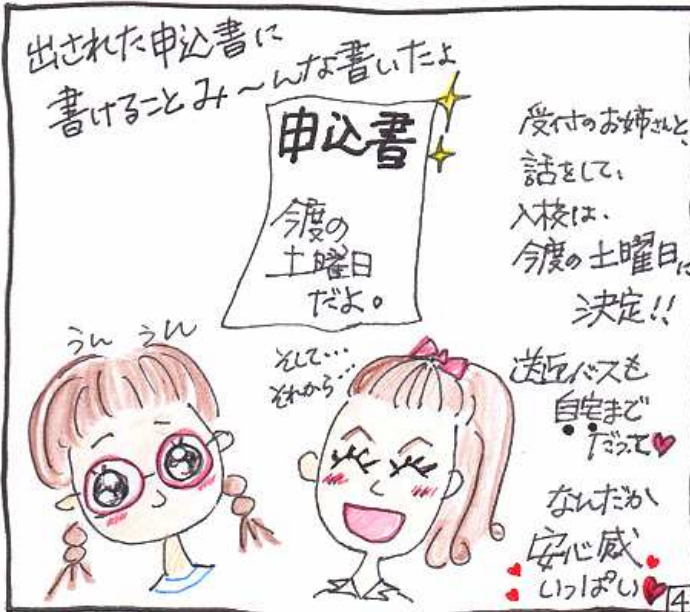 出された申込書に
書けることみ～んな書いたよ
申込書
今度の
土曜日
だよ。
受付のお姉さんと、
話をして、
入校は、
今度の土曜日に
決定!!
送迎バスも
自宅まで
だって♥
なんだか
安心感
いっぱい♥
うん うん
そして…
それから…
4